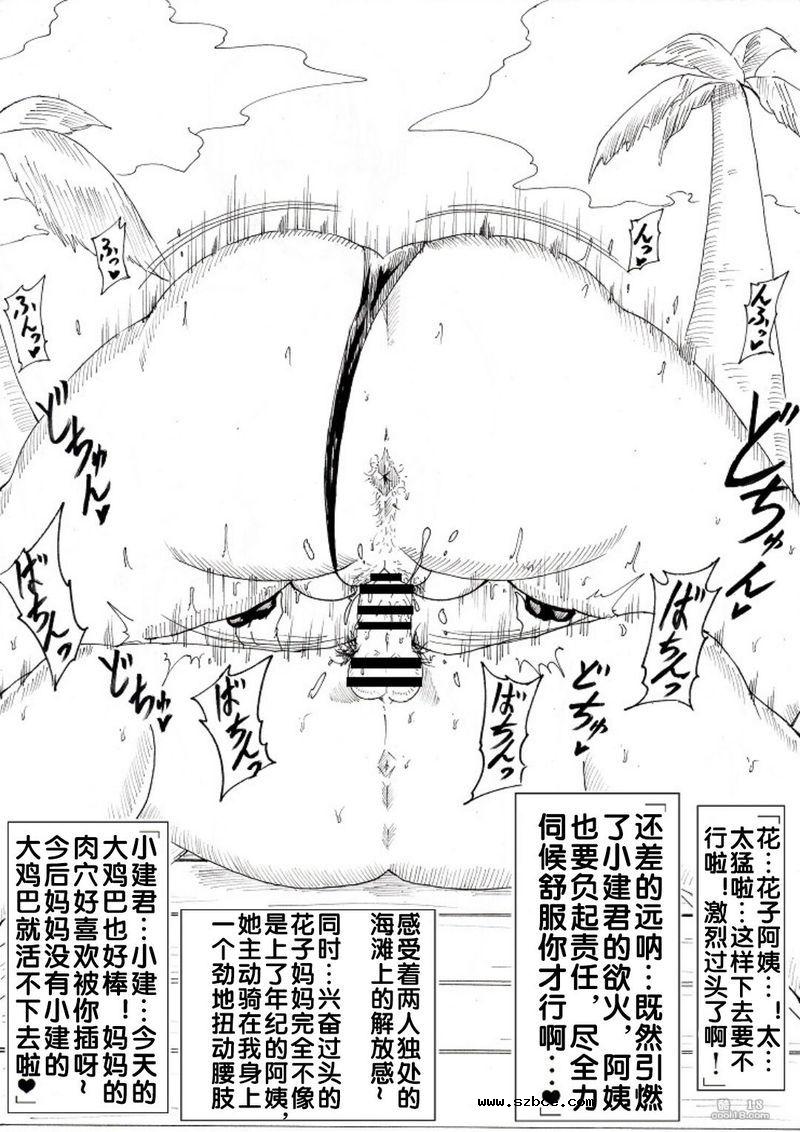 「花…花子阿姨…！太…
太猛啦…这样下去要不
行啦！激烈过头了啊！」
「还差的远呐…既然引燃
了小建君的欲火，阿姨
也要负起责任，尽全力
伺候舒服你才行啊…♥」
感受着两人独处的
海滩上的解放感~
同时…兴奋过头的
花子妈妈完全不像
是上了年纪的阿姨，
她主动骑在我身上
一个劲地扭动腰肢
「小建君…小建…今天的
大鸡巴也好棒！妈妈的
肉穴好喜欢被你插呀~
今后妈妈没有小建的
大鸡巴就活不下去啦♥」
んっ♥
んふっ♥
ふっ♥
ふんっ♥
どちゅん♥
どちゅん♥
ばちんっ
ばちんっ
どちゅ♥
どちゅ♥
ばちんっ
ばちんっ
www.szbce.com
酷18
cool18.com